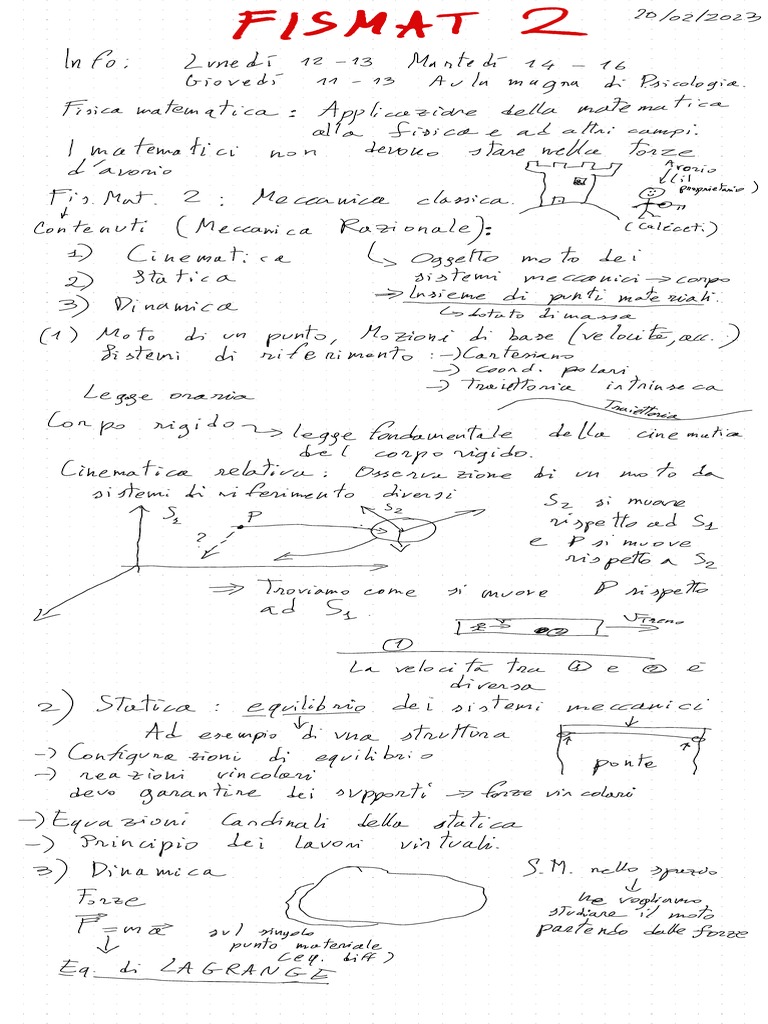 FISMAT 2
20/02/2023
Info: Lunedí 12-13 Martedí 14-16
Giovedí 11-13 Aula magna di Psicologia.
Fisica matematica: Applicazione della matematica
alla fisica e ad altri campi.
I matematici non devono stare nella torre
d'avorio
Avorio
(il
proprietario)
(Calċeċti)
Fis. Mat. 2: Meccanica classica.
Contenuti (Meccanica Razionale):
1) Cinematica
2) Statica
3) Dinamica
↳ Oggetto moto dei
sistemi meccanici → corpo
⇒ Insieme di punti materiali.
↳ Dotato di massa
(1) Moto di un punto, Nozioni di base (velocità, acc..)
Sistemi di riferimento: → Cartesiano
→ coord. polari
→ Traiettoria intrinseca
Legge oraria
Traiettoria
Corpo rigido → legge fondamentale della cinematica
del corpo rigido.
Cinematica relativa: Osservazione di un moto da
sistemi di riferimento diversi
S1
P
S2
?
S2 si muove
rispetto ad S1
e P si muove
rispetto a S2
⇒ Troviamo come si muove P rispetto
ad S1.
2
V Treno
1
La velocità tra 1 e 2 è
diversa
2) Statica: equilibrio dei sistemi meccanici
Ad esempio di una struttura
→ Configurazioni di equilibrio
→ reazioni vincolari
devo garantire dei supporti → forze vincolari
ponte
→ Equazioni Cardinali della statica
→ Principio dei lavori virtuali.
3) Dinamica
Forze
F = ma sul singolo
punto materiale
(eq. diff)
Eq. di LAGRANGE
S.M. nello spazio
ne vogliamo
studiare il moto
partendo dalle forze